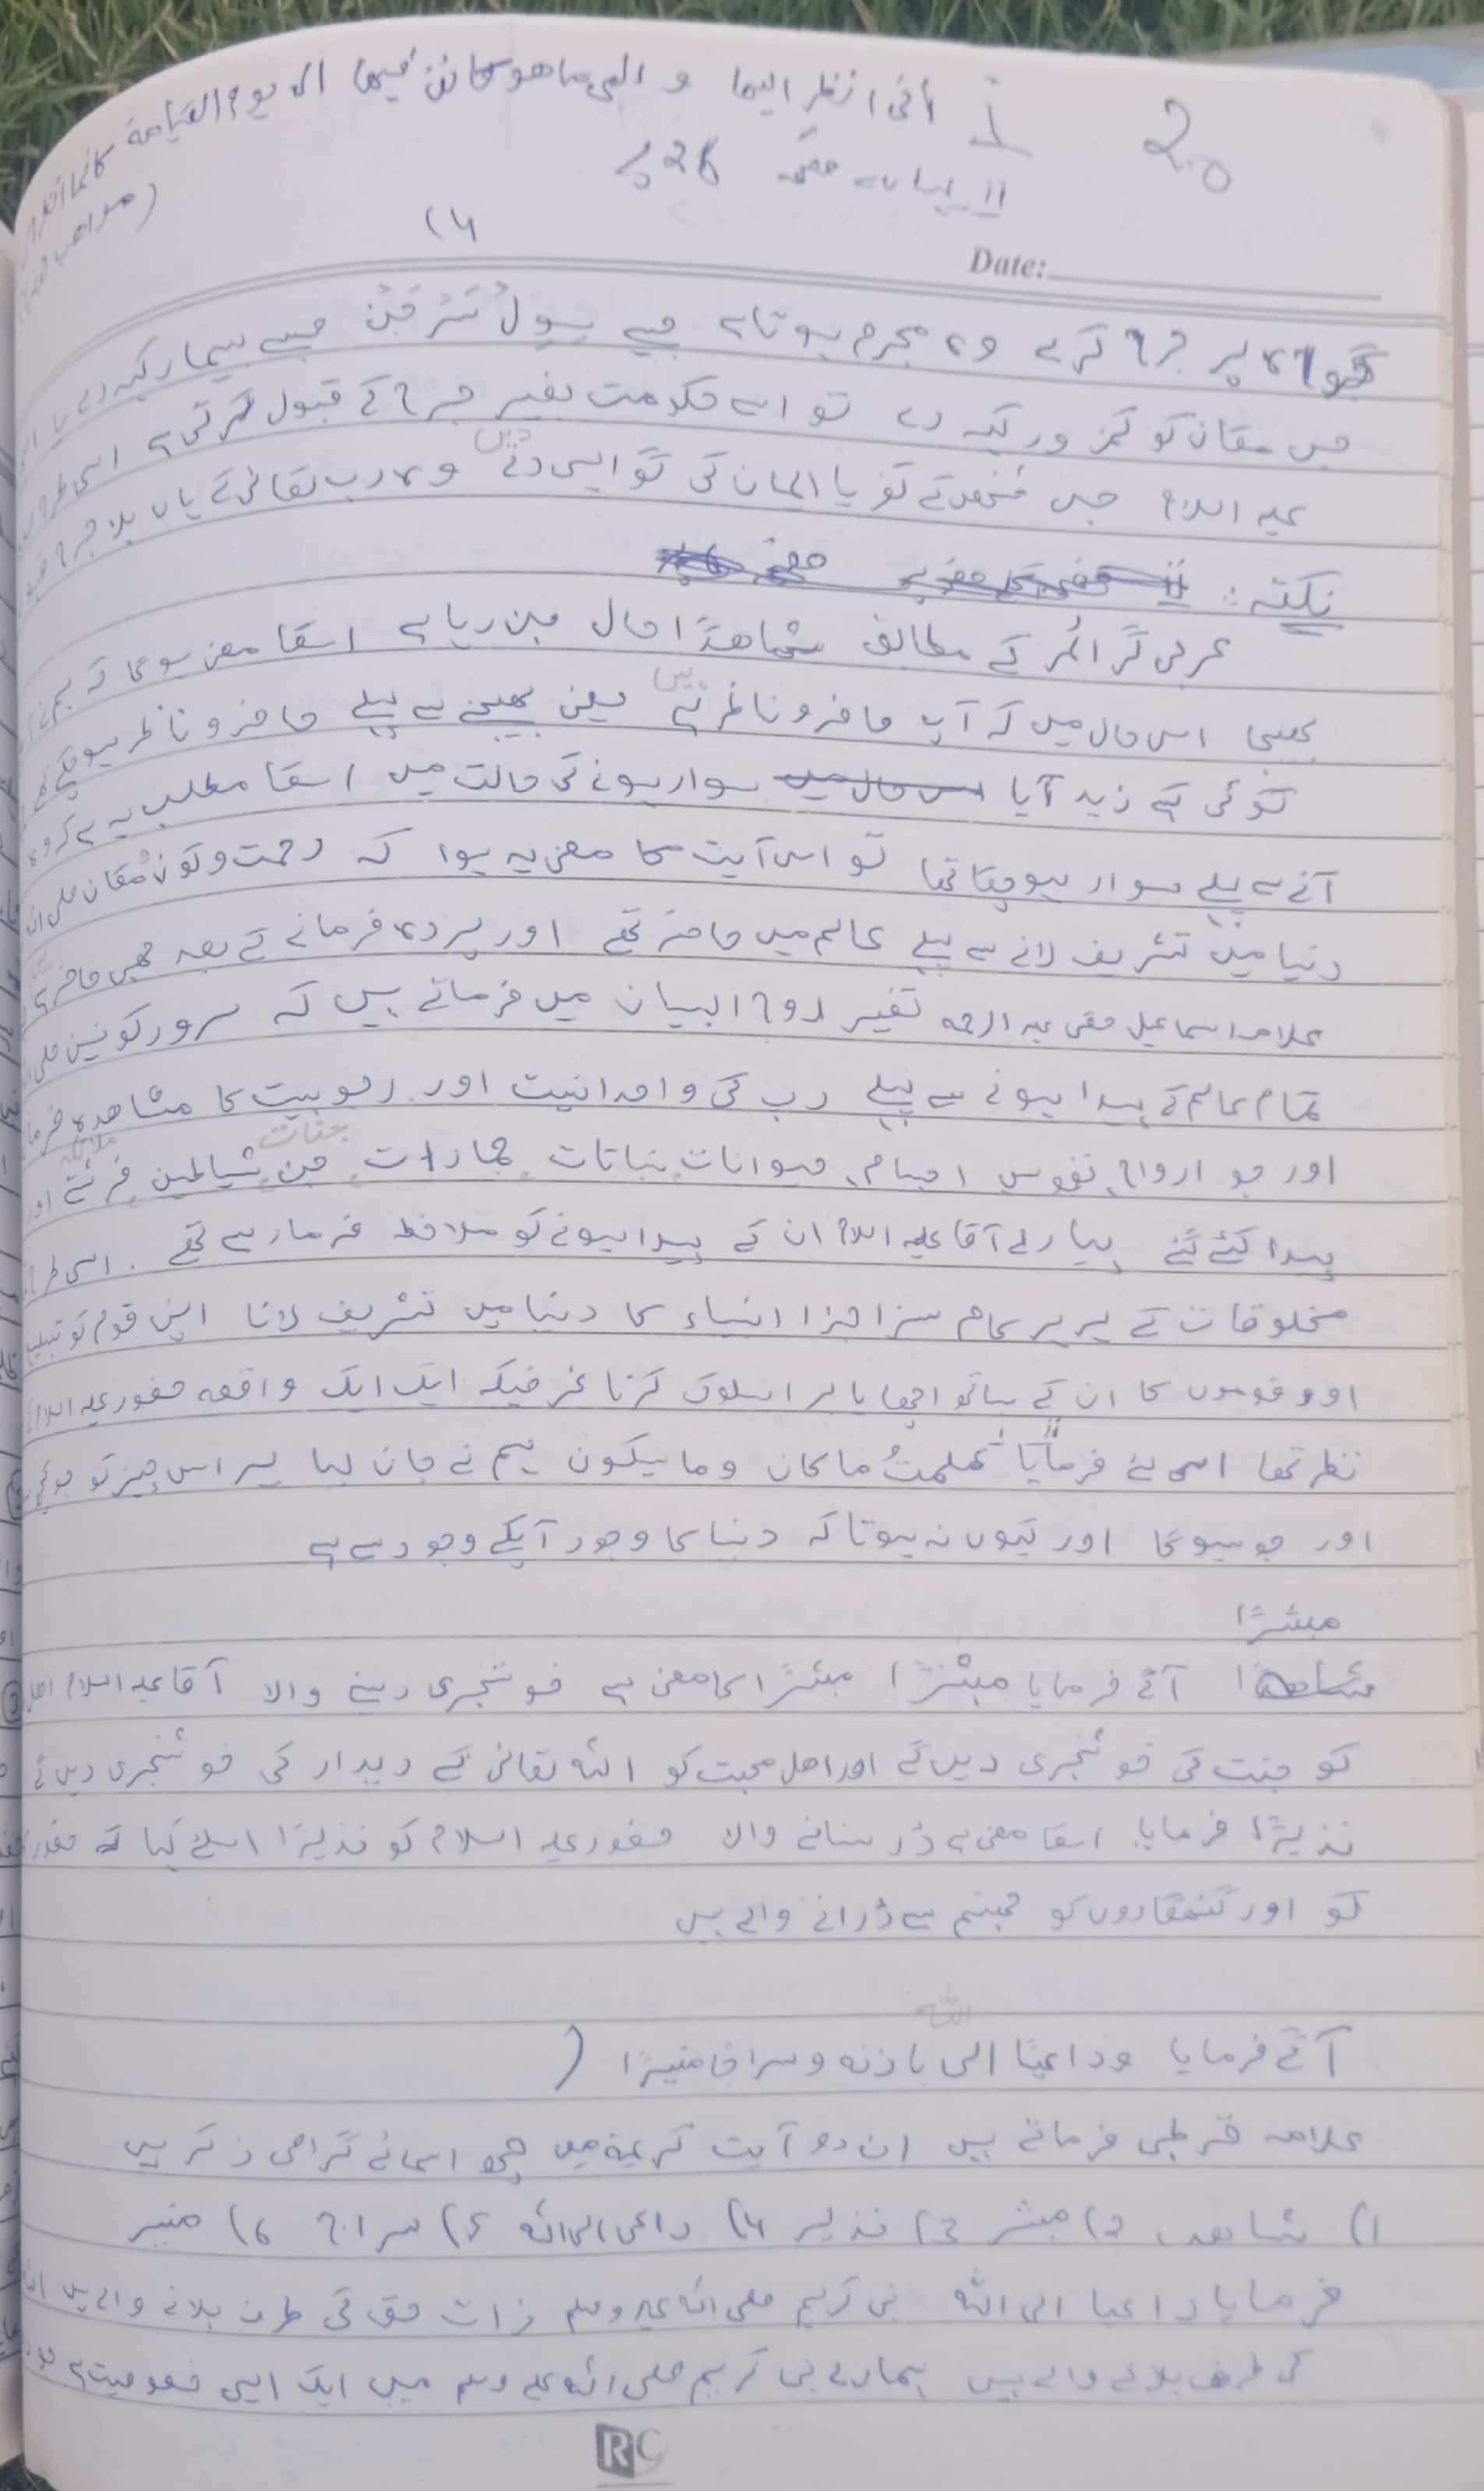 فأنی انظر الیها و الی ما هو کائن فیها الی یوم القیامة کانما انظر
20
" لبیان صفحہ 526
(مواهب
(4
Date:
گواہ پر جرح کرے وہ مجرم ہوتا ہے جیسے سول سرجن جسے بیمار کہہ دے یا
جس مقان کو کمزور کہہ دے تو اسے حکومت بغیر جرح کے قبول کرتی ہے اسی طرح
علیہ السلام جس شخص کے کفر یا ایمان کی گواہی دے دیں وہ رب تعالی کے ہاں بلا جرح
نکتہ:
عربی گرائمر کے مطابق شاھدًا حال بن رہا ہے اسکا معنی ہو گا کہ ہم نے
بھیجا اس حال میں کہ آپ حاضر و ناظر ہیں یعنی بھیجنے سے پہلے حاضر و ناظر ہو چکے تھے
کوئی کہے زید آیا سوار ہونے کی حالت میں اسکا مطلب یہ ہے کہ وہ
آنے سے پہلے سوار ہو چکا تھا تو اس آیت کا معنی یہ ہوا کہ رحمت
دنیا میں تشریف لانے سے پہلے عالم میں حاضر تھے اور پردہ فرمانے کے بعد بھی حاضر ہیں
علامہ اسماعیل حقی علیہ الرحمہ تفسیر روح البیان میں فرماتے ہیں کہ سرور کونین صلی
تمام عالم کے پیدا ہونے سے پہلے رب کی واحدانیت اور ربوبیت کا مشاھدہ فرما
اور جو ارواح، نفوس، اجسام، حیوانات، نباتات، جمادات، جن جنات، شیاطین، فرشتے ملائکہ اور
پیدا کئے گئے پیارے آقا علیہ السلام ان کے پیدا ہونے کو ملاحظہ فرما رہے تھے۔ اسی طرح
مخلوقات کے ہر ہر کام سزا جزا انبیاء کا دنیا میں تشریف لانا اپنی قوم کو تبلیغ
اور قوموں کا ان کے ساتھ اچھا یا برا سلوک کرنا غرضیکہ ایک ایک واقعہ حضور علیہ السلام
نظر تھا اسی لئے فرمایا "علمتُ ما کان وما یکون ہم نے جان لیا ہر اس چیز کو جو
اور جو ہو گا اور کیوں نہ ہوتا کہ دنیا کا وجود آپکے وجود سے ہے
مبشرًا
آگے فرمایا مبشرًا مبشرًا کا معنی ہے خوشخبری دینے والا آقا علیہ السلام اھل
کو جنت کی خوشخبری دیں گے اور اھل محبت کو اللہ تعالی کے دیدار کی خوشخبری دیں گے
نذیرًا فرمایا اسکا معنی ہے ڈر سنانے والا حضور علیہ السلام کو نذیرًا اسلئے کہا کہ حضور
کو اور گنھگاروں کو جہنم سے ڈرانے والے ہیں
آگے فرمایا وداعیًا الی اللہ باذنہ وسراجا منیرًا (
علامہ قرطبی فرماتے ہیں ان دو آیت کریمہ میں چھ اسمائے گرامی ذکر ہیں
1) شاھد، 2) مبشر 3) نذیر 4) داعی الی اللہ 5) سراج 6) منیر
فرمایا داعیا الی اللہ نبی کریم صلی اللہ علیہ وسلم ذات حق کی طرف بلانے والے ہیں اللہ
کی طرف بلانے والے ہیں ہمارے نبی کریم صلی اللہ علیہ وسلم میں ایک ایسی خصوصیت ہے جو
RC